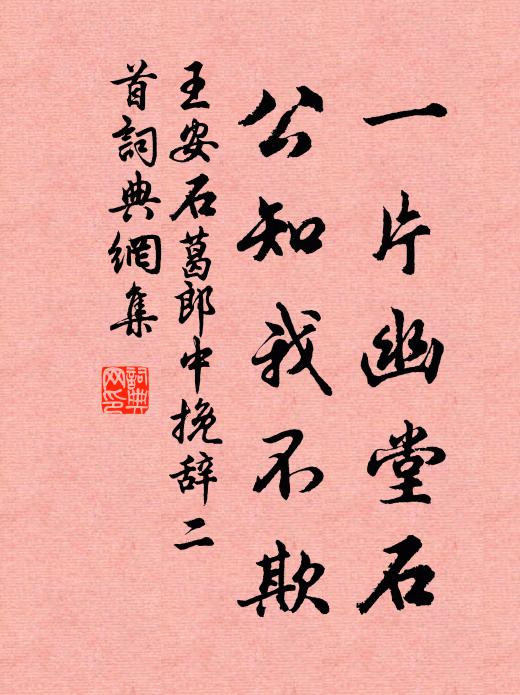 一片幽堂石
公知我不欺
王安石葛郎中挽辞二
首詞典網集
詞典
网印